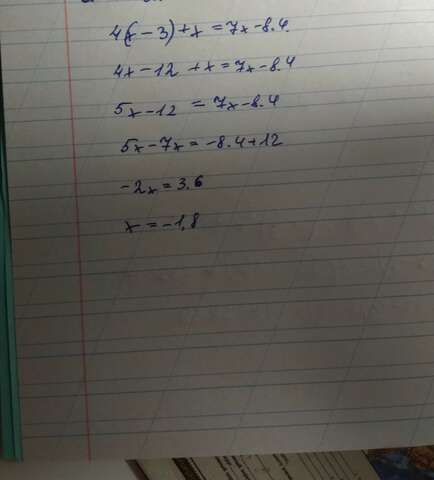 4(x-3)+x=7x-8.4
4x-12+x=7x-8.4
5x-12=7x-8.4
5x-7x=-8.4+12
-2x=3.6
x=-1,8